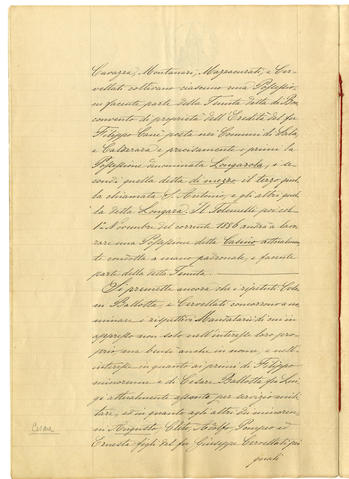 Cavazza, Montanari, Mazzacurati, e Cer-
vellati coltivano ciascuno una Possessio-
ne facente parte della Tenuta detta di Bon
convento di proprietà dell'Eredità del fu
Filippo Canè posta nei Comuni di Sala,
e Calderara e precisamente i primi la
Possessione denominata Longarola, i se-
condi quella detta di mezzo il terzo quel
la chiamata S. Antonio, e gli altri quel
la della Longara. Il Tolomelli poi col
1º Novembre del corrente 1886 andrà a lavo-
rare una Possessione detta Casino attualmen-
te condotta a mano padronale, e facente
parte della detta Tenuta.
Si premette ancora che i ripetuti Colo
ni Ballotta, e Cervellati concorrono a no
minare i rispettivi Mandatari di cui in
appresso non solo nell'interesse loro pro-
prio ma bensì anche in nome, e nell'
interesse in quanto ai primi di Filippo
minorenne e di Cesare Ballotta fu Lui
gi attualmente assente per servizio mili
tare, ed in quanto agli altri dei minoren
ni Augusto, Cleto, Adolfo, Pompeo ed
Ernesta figli del fu Giuseppe Cervellati pei
quali